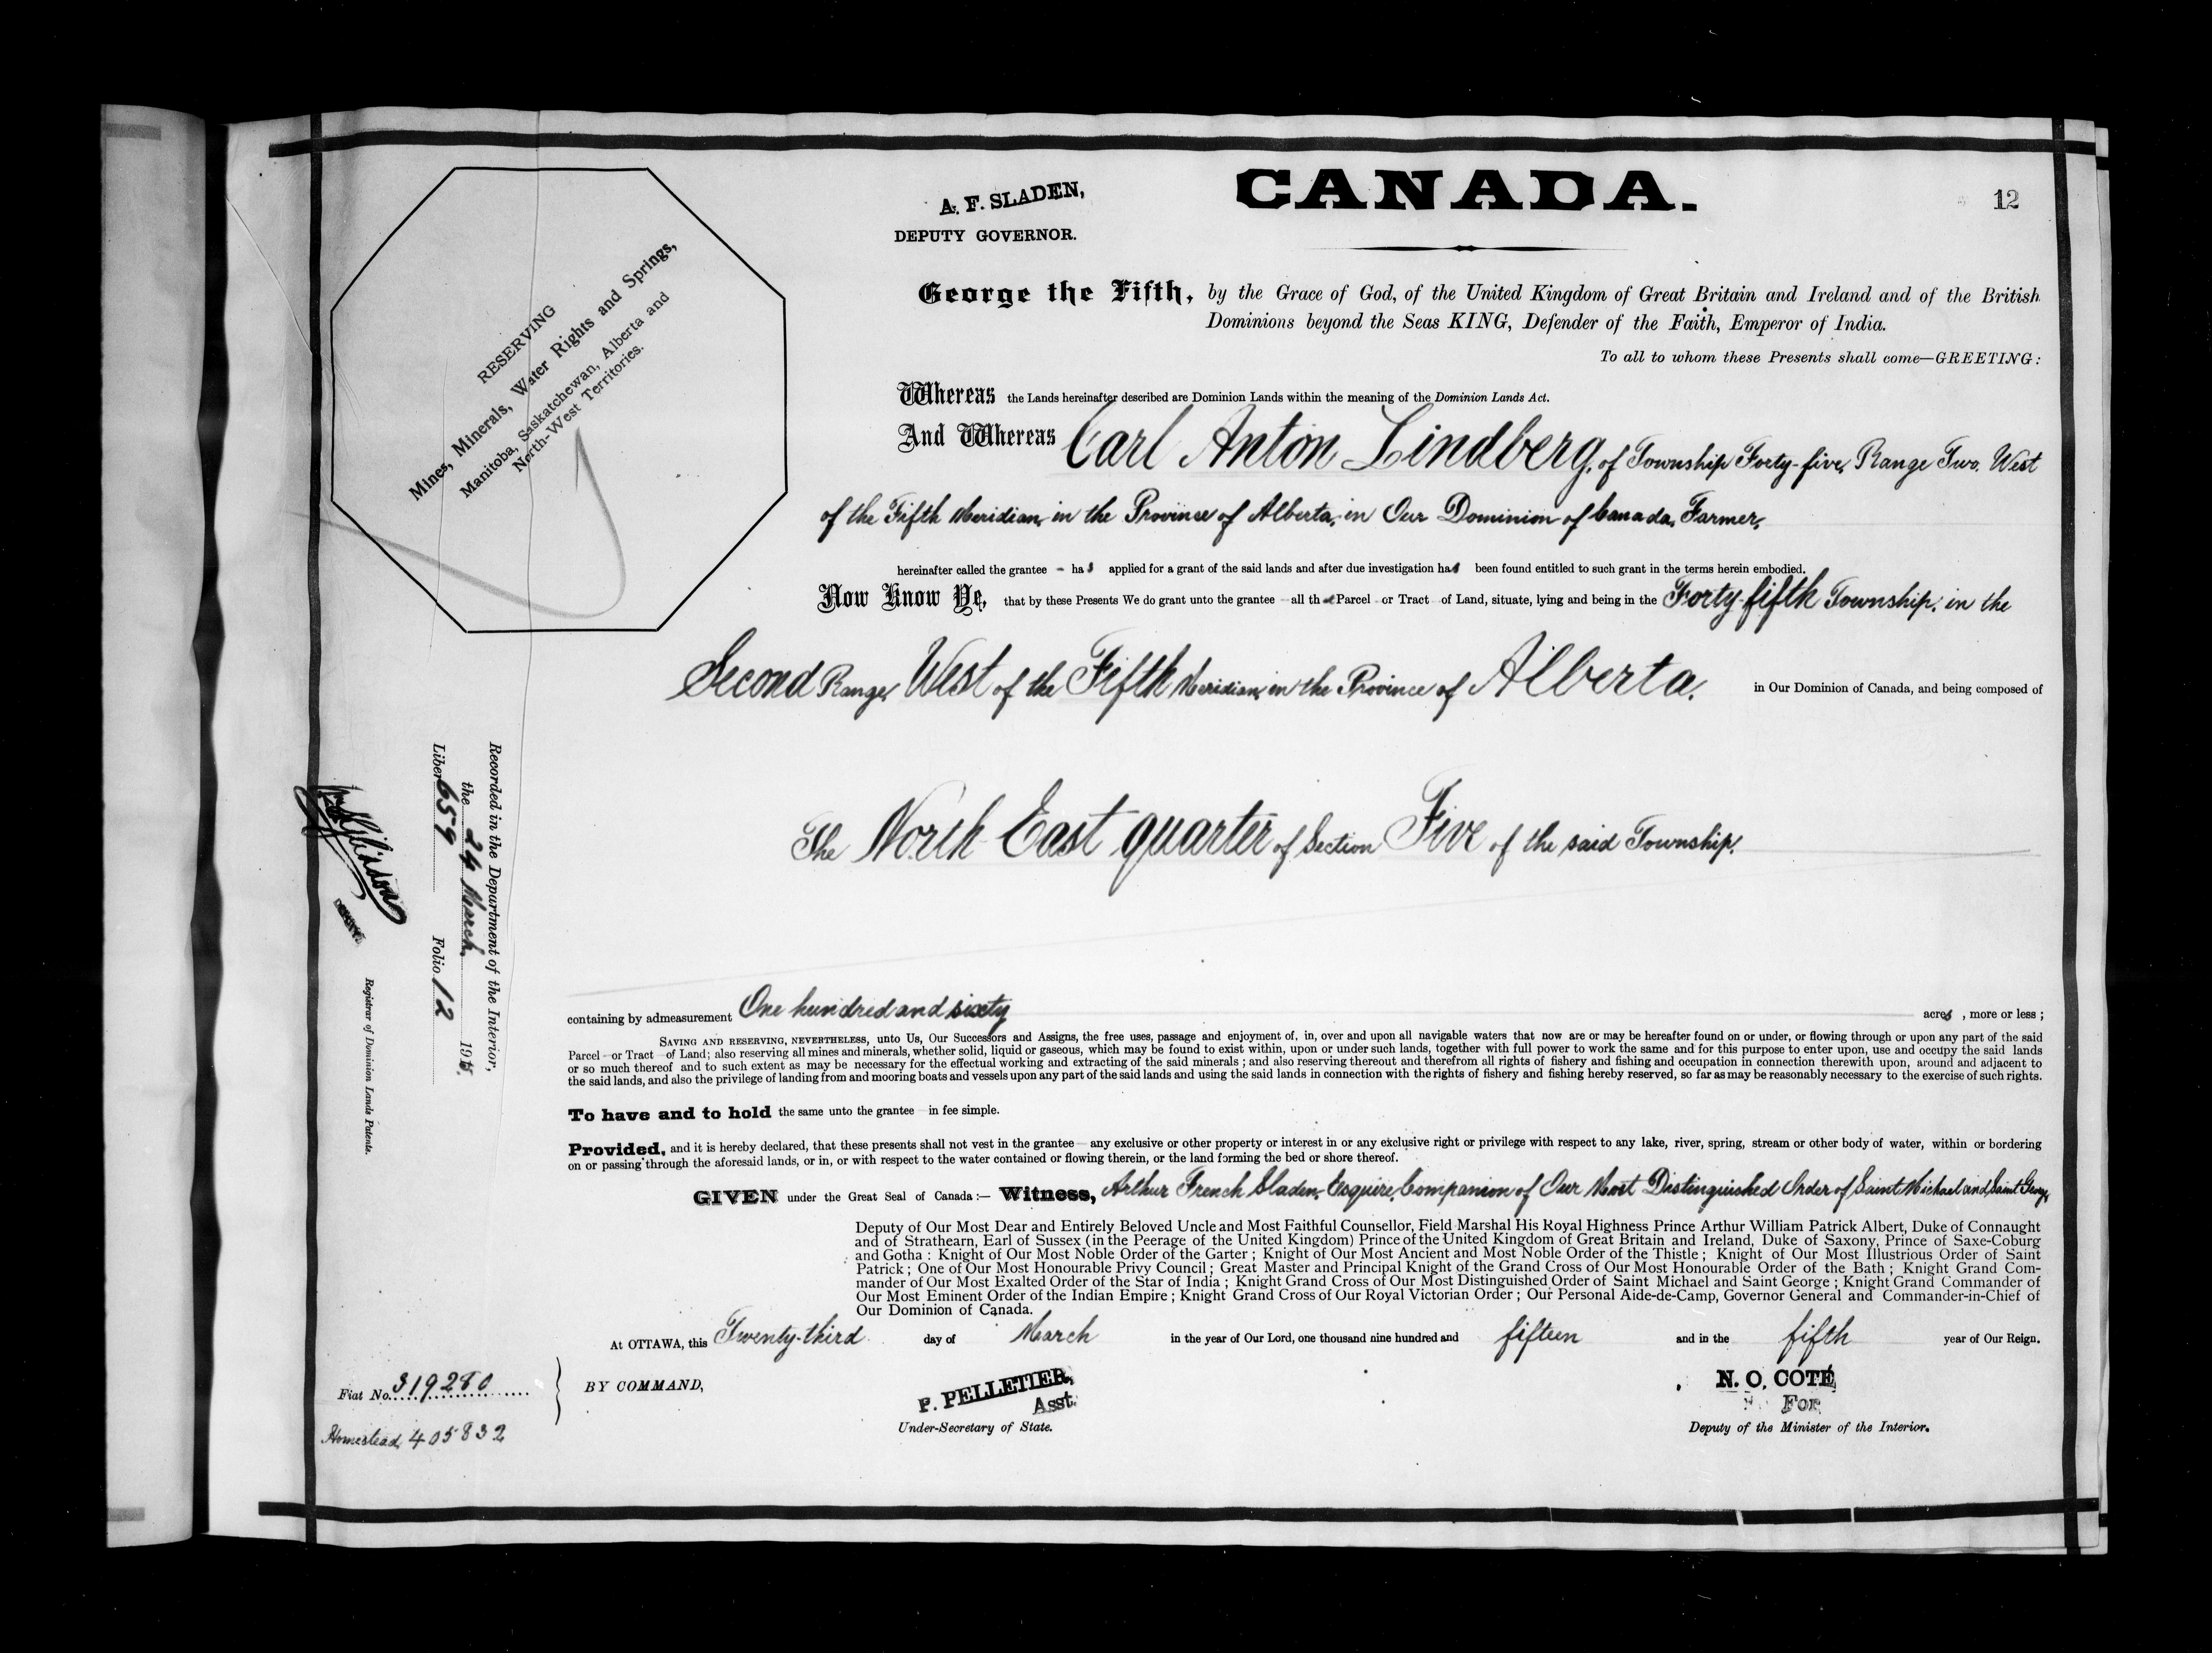 CANADA.
12
A. F. SLADEN,
DEPUTY GOVERNOR.
RESERVING
Mines, Minerals, Water Rights and Springs,
Manitoba, Saskatchewan, Alberta and
North-West Territories.
George the Fifth, by the Grace of God, of the United Kingdom of Great Britain and Ireland and of the British
Dominions beyond the Seas KING, Defender of the Faith, Emperor of India.
To all to whom these Presents shall come—GREETING:
Whereas the Lands hereinafter described are Dominion Lands within the meaning of the Dominion Lands Act.
And Whereas Carl Anton Lindberg, of Township Forty-five, Range Two, West
of the Fifth Meridian, in the Province of Alberta, in Our Dominion of Canada, Farmer,
hereinafter called the grantee - has applied for a grant of the said lands and after due investigation has been found entitled to such grant in the terms herein embodied.
Now Know Ye, that by these Presents We do grant unto the grantee all that Parcel or Tract of Land, situate, lying and being in the Forty-fifth Township, in the
Second Range, West of the Fifth Meridian, in the Province of Alberta, in Our Dominion of Canada, and being composed of
The North East quarter of Section Five of the said Township.
containing by admeasurement One hundred and sixty acres, more or less;
SAVING AND RESERVING, NEVERTHELESS, unto Us, Our Successors and Assigns, the free uses, passage and enjoyment of, in, over and upon all navigable waters that now are or may be hereafter found on or under, or flowing through or upon any part of the said
Parcel or Tract of Land; also reserving all mines and minerals, whether solid, liquid or gaseous, which may be found to exist within, upon or under such lands, together with full power to work the same and for this purpose to enter upon, use and occupy the said lands
or so much thereof and to such extent as may be necessary for the effectual working and extracting of the said minerals; and also reserving thereout and therefrom all rights of fishery and fishing and occupation in connection therewith upon, around and adjacent to
the said lands, and also the privilege of landing from and mooring boats and vessels upon any part of the said lands and using the said lands in connection with the rights of fishery and fishing hereby reserved, so far as may be reasonably necessary to the exercise of such rights.
To have and to hold the same unto the grantee in fee simple.
Provided, and it is hereby declared, that these presents shall not vest in the grantee any exclusive or other property or interest in or any exclusive right or privilege with respect to any lake, river, spring, stream or other body of water, within or bordering
on or passing through the aforesaid lands, or in, or with respect to the water contained or flowing therein, or the land forming the bed or shore thereof.
GIVEN under the Great Seal of Canada:— Witness, Arthur French Sladen, Esquire, Companion of Our Most Distinguished Order of Saint Michael and Saint George,
Deputy of Our Most Dear and Entirely Beloved Uncle and Most Faithful Counsellor, Field Marshal His Royal Highness Prince Arthur William Patrick Albert, Duke of Connaught
and of Strathearn, Earl of Sussex (in the Peerage of the United Kingdom) Prince of the United Kingdom of Great Britain and Ireland, Duke of Saxony, Prince of Saxe-Coburg
and Gotha: Knight of Our Most Noble Order of the Garter; Knight of Our Most Ancient and Most Noble Order of the Thistle; Knight of Our Most Illustrious Order of Saint
Patrick; One of Our Most Honourable Privy Council; Great Master and Principal Knight of the Grand Cross of Our Most Honourable Order of the Bath; Knight Grand Com-
mander of Our Most Exalted Order of the Star of India; Knight Grand Cross of Our Most Distinguished Order of Saint Michael and Saint George; Knight Grand Commander of
Our Most Eminent Order of the Indian Empire; Knight Grand Cross of Our Royal Victorian Order; Our Personal Aide-de-Camp, Governor General and Commander-in-Chief of
Our Dominion of Canada.
At OTTAWA, this Twenty-third day of March in the year of Our Lord, one thousand nine hundred and fifteen and in the fifth year of Our Reign.
BY COMMAND,
P. PELLETIER,
Asst.
Under-Secretary of State.
N. O. COTÉ
For
Deputy of the Minister of the Interior.
Fiat No. 319280
Homestead, 405832
Recorded in the Department of the Interior,
the 24 March, 1915.
Liber 659 Folio 12
Registrar of Dominion Lands Patents.